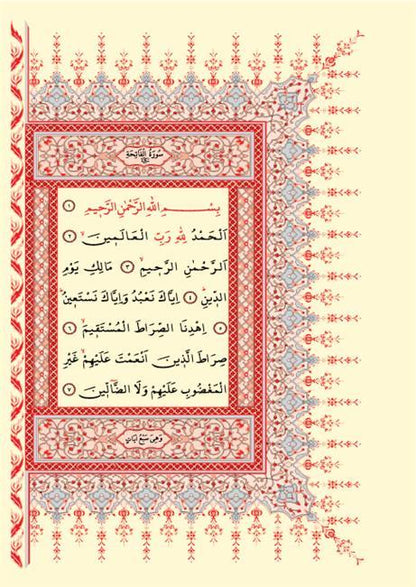 سُورَةُ الْفَاتِحَةِ
بِسْمِ اللّٰهِ الرَّحْمٰنِ الرَّحِيمِ ﴿١﴾
اَلْحَمْدُ لِلّٰهِ رَبِّ الْعَالَمِينَ ﴿٢﴾
اَلرَّحْمٰنِ الرَّحِيمِ ﴿٣﴾ مَالِكِ يَوْمِ
الدِّينِ ﴿٤﴾ اِيَّاكَ نَعْبُدُ وَاِيَّاكَ نَسْتَعِينُ
﴿٥﴾ اِهْدِنَا الصِّرَاطَ الْمُسْتَقِيمَ ﴿٦﴾
صِرَاطَ الَّذِينَ اَنْعَمْتَ عَلَيْهِمْ غَيْرِ
الْمَغْضُوبِ عَلَيْهِمْ وَلَا الضَّٓالِّينَ ﴿٧﴾
وَهِيَ سَبْعُ اٰيَاتٍ